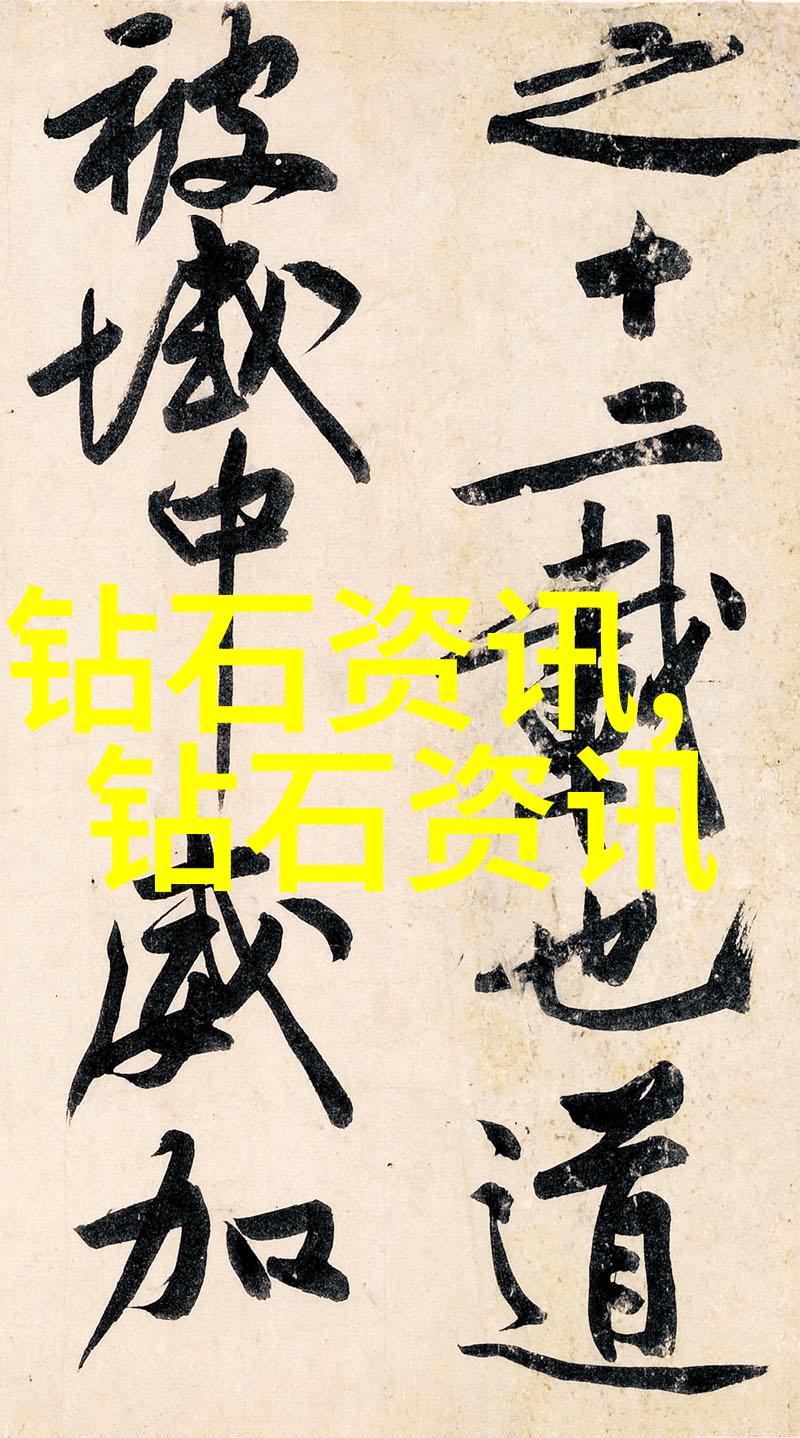 之十二載也道
被域中威加
钻石资讯,
钻石资讯